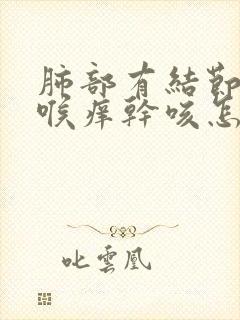 肺部有結節
喉痒幹咳怎
叱雲凰